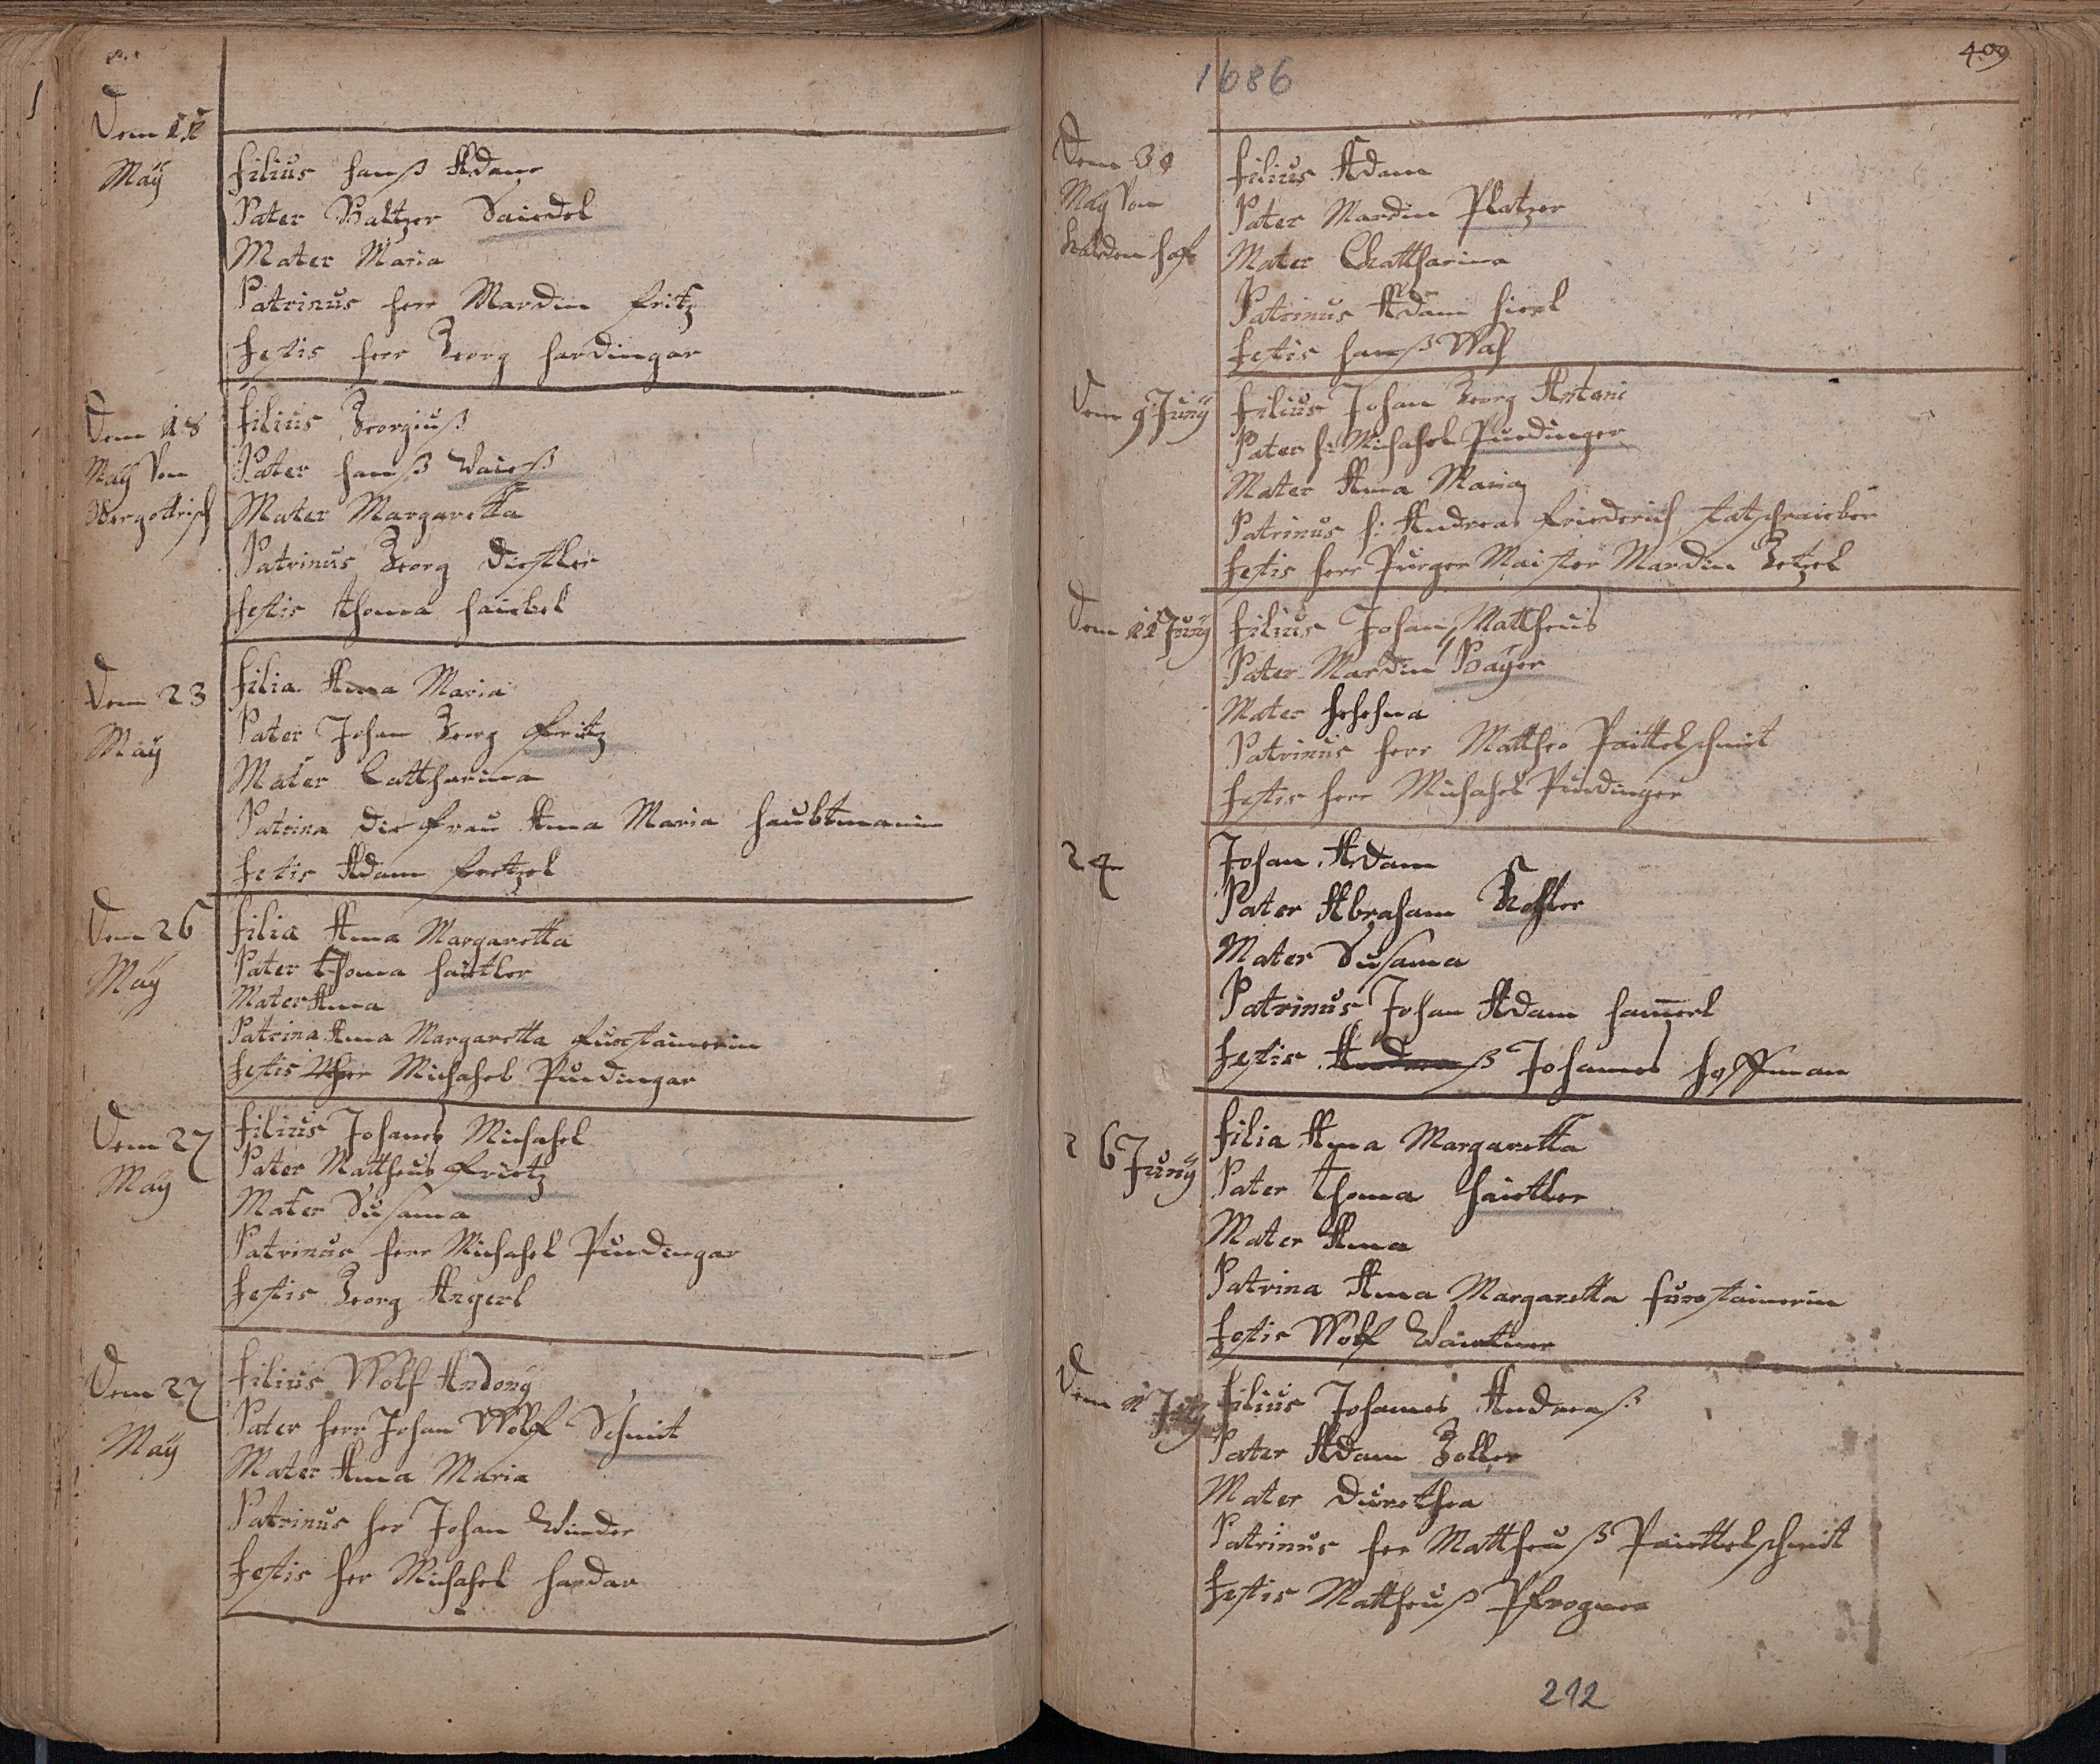 Dem 11
May
Filius Hanß Adam
Pater Baltzer Saiedel
Mater Maria
Patrinus Herr Mardin Fritz
Testis Herr Georg Hardinger
Dem 18
May Von
Filius Georgiuß
Pater Hanß Waieß
Mater Margaretta
Patrinus Georg Diestler
Testis Thoma Haiebel
Dem 23
May
Filia Anna Maria
Pater Johan Georg Fritz
Mater Cattharina
Patrina die Frau Anna Maria Haubtmanin
Testis Adam Fretzel
Dem 26
May
Filia Anna Margaretta
Pater Thoma Haietler
Mater Anna
Patrina Anna Margaretta Furstainerin
Testis Herr Michahel Pundinger
Dem 27
May
Filius Johanes Michahel
Pater Mattheus Frietz
Mater Susanna
Patrinus Herr Michahel Pundinger
Testis Georg Angerl
Dem 27
May
Filius Wolf Andony
Pater Herr Johan Wolf Schmit
Mater Anna Maria
Patrinus Her Johan Winder
Testis Her Michahel Hardar
409
1686
Dem 30
May Von
Filius Adam
Pater Mardin Platzer
Mater Chattharina
Patrinus Adam Hierl
Testis Hanß
Dem 9 Juny
Filius Johan Georg Antoni
Pater H: Michahel Pundinger
Mater Anna Maria
Patrinus H: Andreas Friederich Statschraieber
Testis Herr Purger Maister Mardin Getzel
Dem 11 Juny
Filius Johan Mattheus
Pater Mardin Bayer
Mater
Patrinus Herr Mattheo Paittelschmit
Testis Herr Michahel Pundinger
24
Johan Adam
Pater Abraham Kohler
Mater Susanna
Patrinus Johan Adam Hammerl
Testis Andreaß Johannes Hoffman
26 Juny
Filia Anna Margaretta
Pater Thoma Haietler
Mater Anna
Patrina Anna Margaretta Furstainerin
Testis Wolf
Dem 1 July
Filius Johanes Andreaß
Pater Adam Zoller
Mater Durothea
Patrinus Her Mattheuß Paiettelschmit
Testis Mattheuß Pfrogner
212